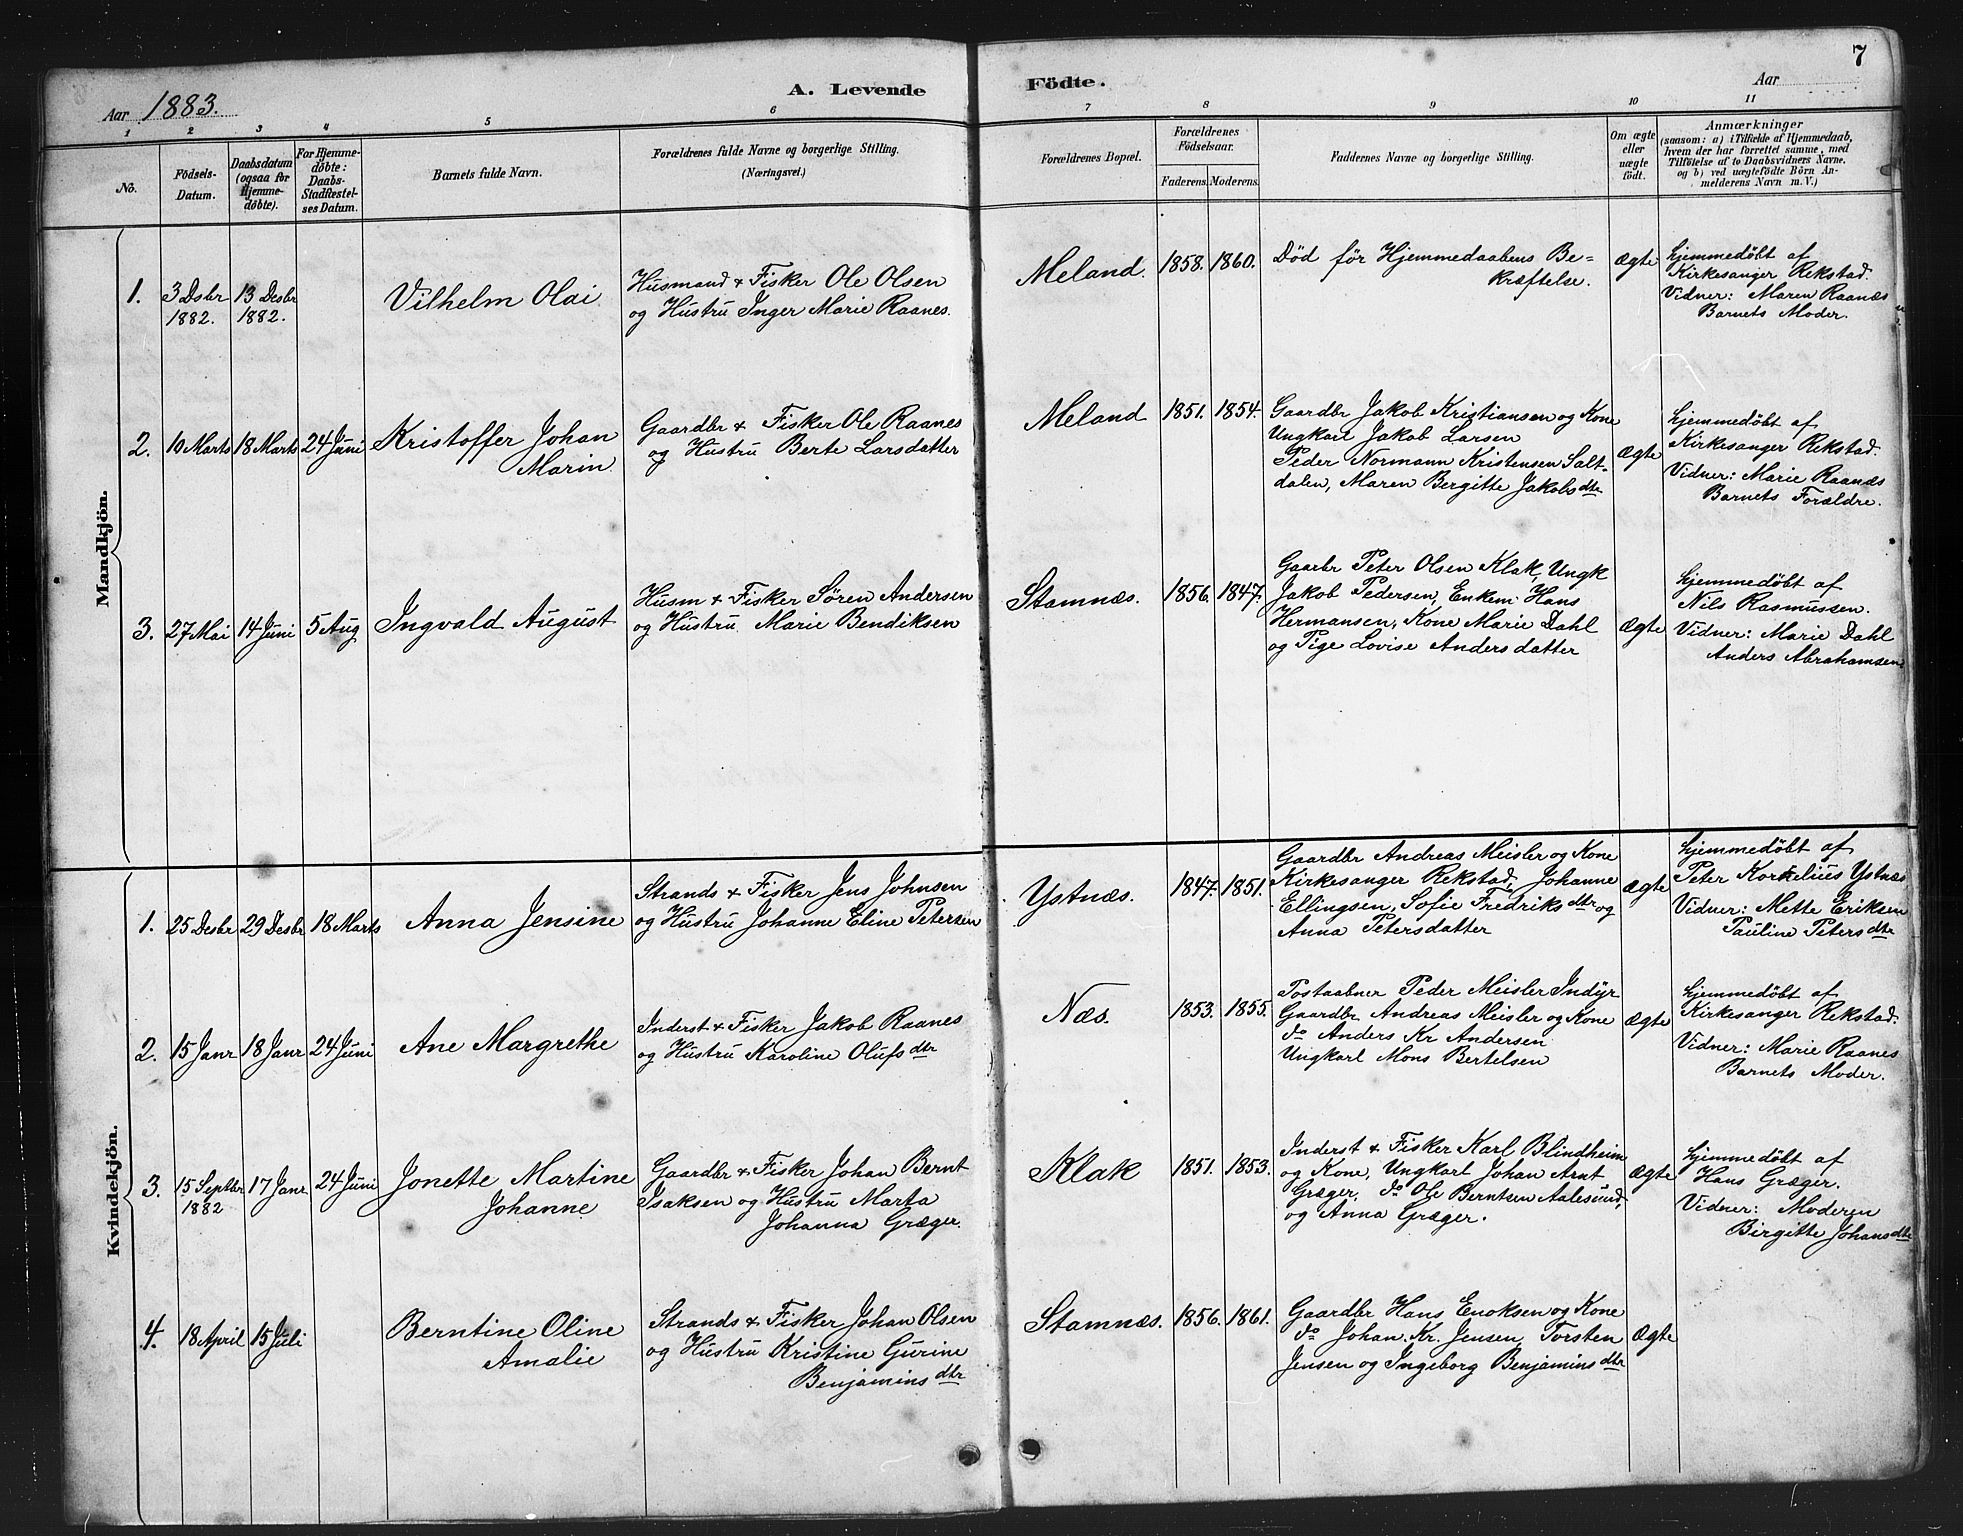 7
Aar 1883.
A. Levende Födte.
Aar
1 2 3 4 5 6 7 8 9 10 11
No.
Födsels-
Datum.
Daabsdatum
(ogsaa for
Hjemme-
döbte).
For Hjemme-
döbte:
Daabs-
Stadfæstel-
ses Datum.
Barnets fulde Navn.
Forældrenes fulde Navne og borgerlige Stilling.
(Næringsvei.)
Forældrenes Bopæl.
Forældrenes
Födselsaar.
Faderens. Moderens.
Faddernes Navne og borgerlige Stilling.
Om ægte
eller
uægte
födt.
Anmærkninger
(saasom: a) i Tilfælde af Hjemmedaab,
hvem der har forrettet samme, med
Tilföielse af to Daabsvidners Navne,
og b) ved uægtefödte Börn An-
melderens Navn m. V.)
Mandkjön.
1. 3 Dsbr 1882. 13 Desbr 1882.
Vilhelm Olai
Husmand & Fisker Ole Olsen
og Hustru Inger Marie Raanes.
Meland. 1858. 1860.
Død før Hjemmedaabens Be=
kræftelse.
Ægte
hjemmedøbt af
Kirkesanger Rekstad.
Vidner: Maren Raanæs
Barnets Moder.
2. 10 Marts 18 Marts 24 Juni
Kristoffer Johan
Marin
Gaardbr & Fisker Ole Raanes
og Hustru Berte Larsdatter
Meland 1851. 1854.
Gaardbr Jakob Kristiansen og Kone
Ungkarl Jakob Larsen
Peder Normann Kristensen Salt-
dalen, Maren Bergitte Jakobsdtr
Ægte
hjemmedøbt af
Kirkesanger Rekstad.
Vidner: Marie Raanæs
Barnets Forældre.
3. 27 Mai 14 Juni 5 Aug
Ingvald August
Husm & Fisker Søren Andersen
og Hustru Marie Bendiksen
Stamnæs. 1856. 1847.
Gaarbr Peter Olsen Klak, Ungk
Jakob Pedersen, Enkem. Hans
Hermansen, Kone Marie Dahl
og Pige Lovise Andersdatter
Ægte
hjemmedøbt af
Nils Rasmussen.
Vidner: Marie Dahl
Anders Abrahamsen
Kvindekjön.
1. 25 Desbr 29 Desbr 18 Marts
Anna Jensine
Strands & Fisker Jens Johnsen
og Hustru Johanne Eline Petersen
Ystnæs. 1847. 1851.
Gaardbr Andreas Meisler og Kone
Kirkesanger Rekstad, Johanne
Ellingsen, Sofie Fredriksdtr og
Anna Petersdatter
Ægte
hjemmedøbt af
Peter Kornelius Ystnæs
Vidner: Mette Eriksen
Pauline Petersdtr
2. 15 Janr 18 Janr 24 Juni
Ane Margrethe
Inderst & Fisker Jakob Raanes
og Hustru Karoline Olufsdtr
Næs. 1853. 1855.
Postaabner Peder Meisler Indyr
Gaardbr Andreas Meisler og Kone
do Anders Kr Andersen
Ungkarl Mons Bertelsen
Ægte
hjemmedøbt af
Kirkesanger Rekstad.
Vidner: Marie Raanes
Barnets Moder.
3. 15 Septbr 1882 17 Janr 24 Juni
Jonette Martine
Johanne
Gaardbr & Fisker Johan Bernt
Isaksen og Hustru Marta
Johanna Græger.
Klak 1851. 1853.
Inderst & Fisker Karl Blindheim
og Kone, Ungkarl Johan Arnt
Græger, do Ole Berntsen Aalesund,
og Anna Græger.
Ægte
hjemmedøbt af
Hans Græger.
Vidner: Moderen
Birgitte Johansdtr
4. 18 April 15 Juli
Berntine Oline
Amalie
Strands & Fisker Johan Olsen
og Hustru Kristine Gurine
Benjaminsdtr
Stamnæs. 1856. 1861.
Gaardbr Hans Enoksen og Kone
do Johan. Kr. Jensen, Torsten
Jensen og Ingeborg Benjaminsdtr
Ægte